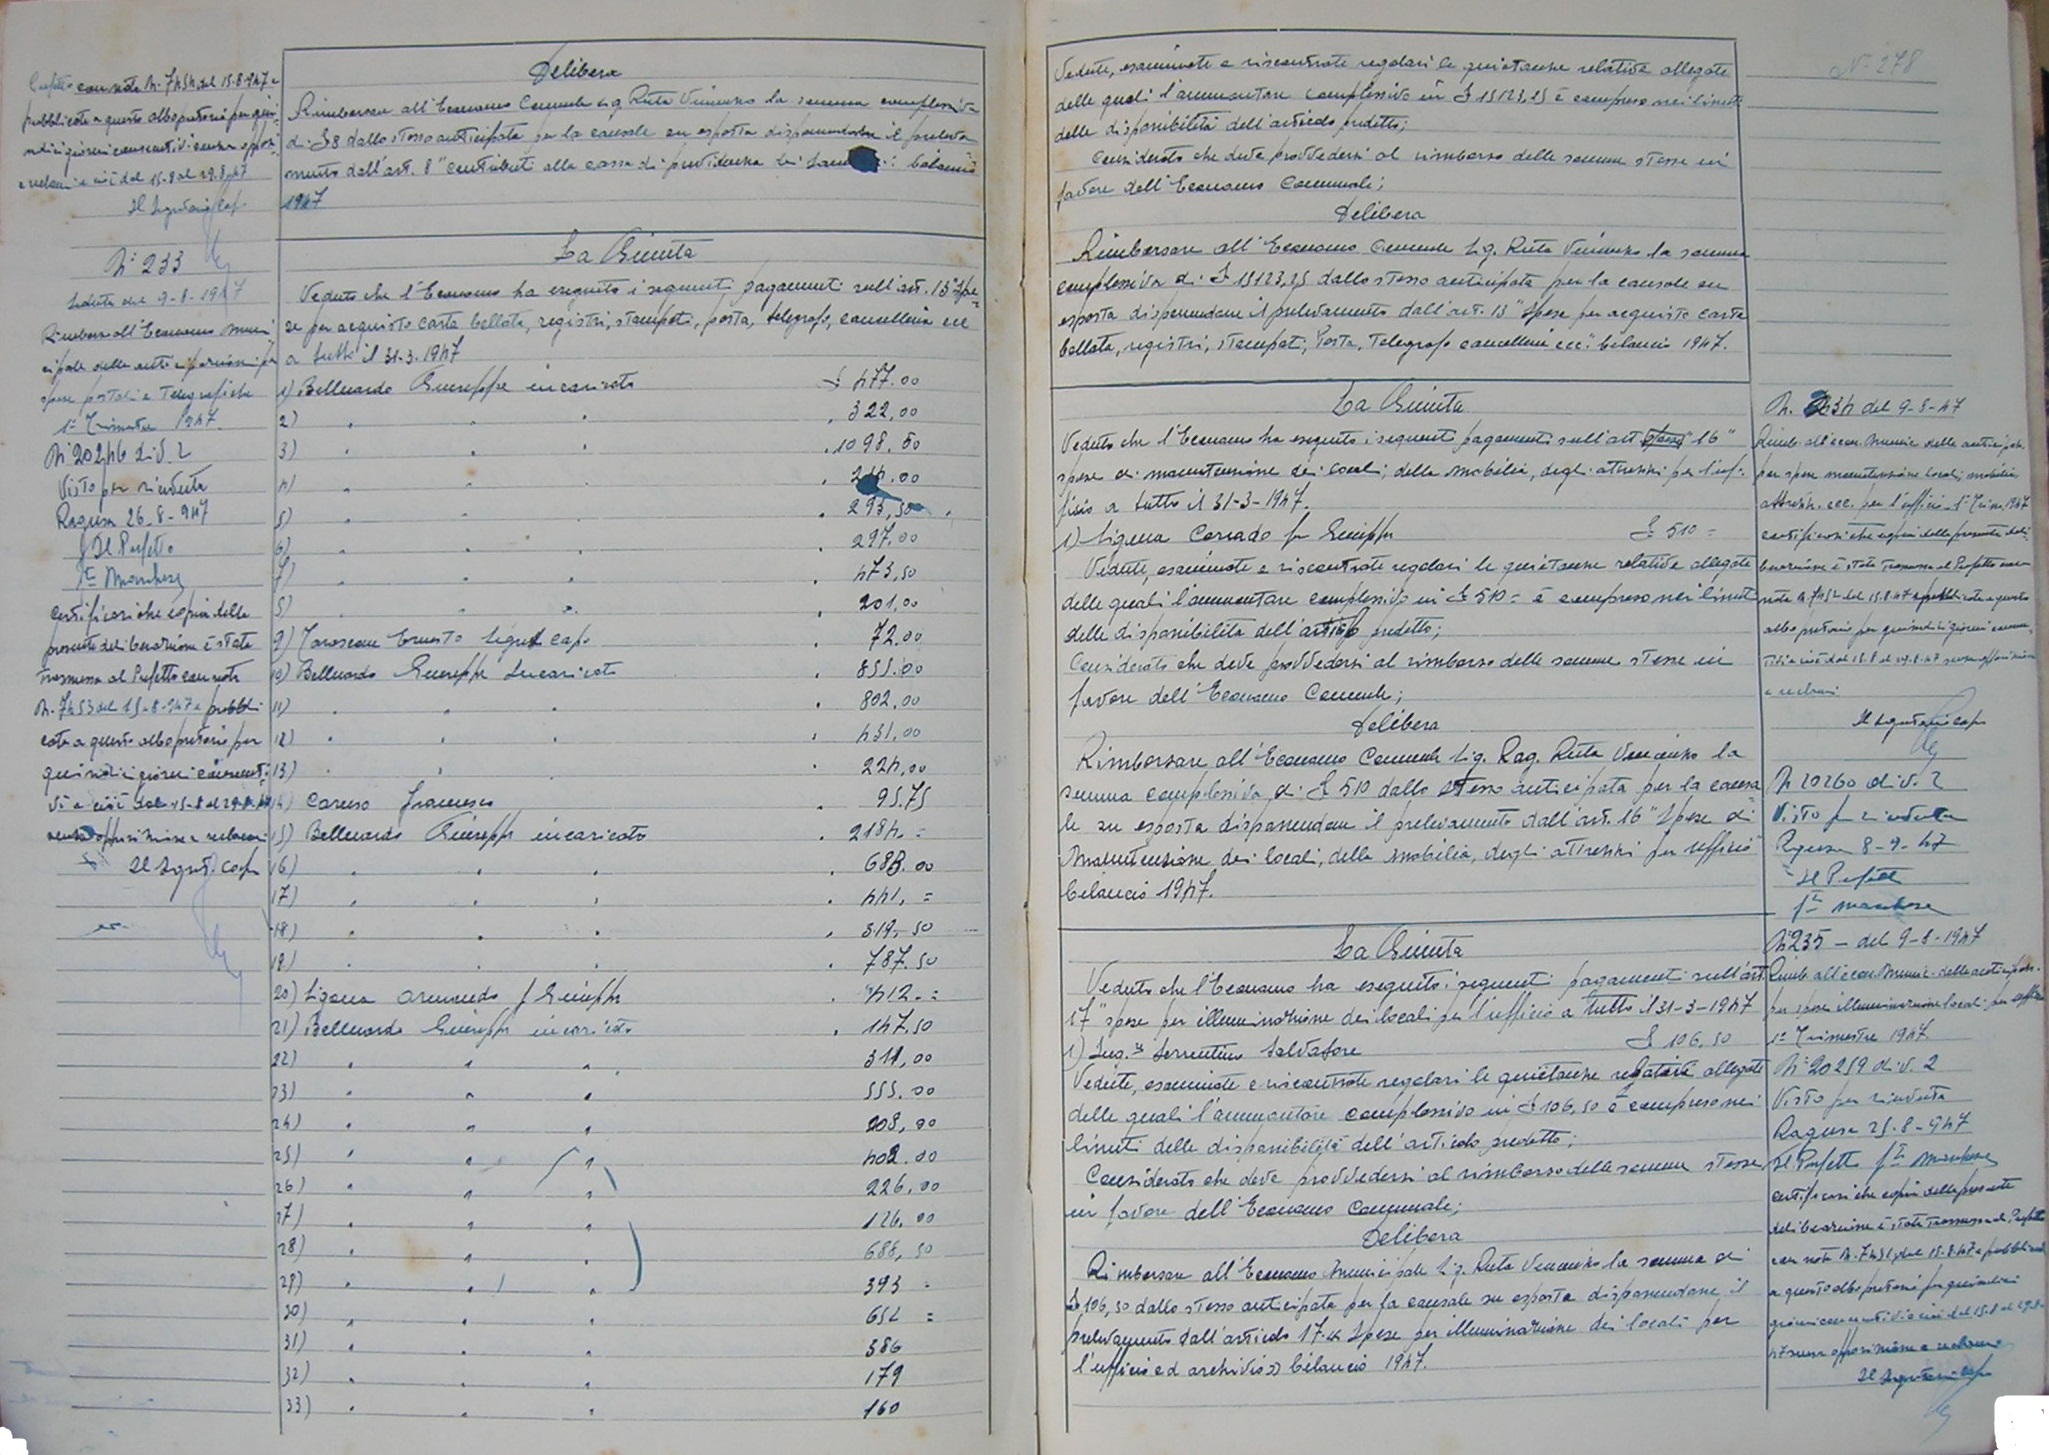 Delibera
Rimborsare all'Economo Comunale Sig. Ruta Vincenzo la somma complessiva
di £ 8 dallo stesso anticipata per la causale su esposta disponendosi il preleva
mento dall'art. 8 "contributi alla cassa di previdenza bilancio
1947
Prefetto con nota N. 7454 del 15-8-947 e
pubblicata a questo albo pretorio per quin-
dici giorni consecutivi senza opposi-
e reclami e cioè dal 15-8 al 29-8-47
Il Segretario Capo
N° 233
Seduta del 9-8-1947
Rimborso all'Economo muni
cipale delle anticipazioni per
spese postali e telegrafiche
1° Trimestre 1947.
N° 20246 div. 2
Visto per ricevuta
Ragusa 26-8-947
Il Prefetto
Certificasi che copia della
presente deliberazione è stata
trasmessa al Prefetto con nota
N. 7453 del 15-8-947 e pubbli
cata a questo albo pretorio per
quindici giorni consecuti
vi e cioè dal 15-8 al 29-8-47
senza opposizione e reclami
Il Segret. Capo
La Giunta
Veduto che l'Economo ha eseguito i seguenti pagamenti sull'art. 13 "Spe
se per acquisto carta bollata, registri, stampati, posta, telegrafo, cancelleria ecc
a tutto il 31-3-1947
1) Belluardo Giuseppe incaricato £ 477.00
2) " " " " 322,00
3) " " " " 1098.50
4) " " " " .00
5) " " " " 293,50
6) " " " " 297.00
7) " " " " 473,50
8) " " " " 201,00
9) Ernesto Segret capo " 72.00
10) Belluardo Giuseppe Incaricato " 855.00
11) " " " " 802,00
12) " " " " 451,00
13) " " " " 224,00
14) Caruso Francesco " 95.75
15) Belluardo Giuseppe incaricato " 2184. =
16) " " " " 688.00
17) " " " " 441, =
18) " " " " 519,50
19) " " " " 787.50
20) Ligama Armando fu Giuseppe " 412. =
21) Belluardo Giuseppe incaricato " 147,50
22) " " " 311,00
23) " " " 555.00
24) " " " 208,00
25) " " " 402.00
26) " " " 226,00
27) " " " 126,00
28) " " " 688,50
29) " " " 393 =
30) " " " 652 =
31) " " " 586
32) " " " 179
33) " " " 160
N° 278
Vedute, esaminate e riscontrate regolari le quietanze relative allegate
delle quali l'ammontare complessivo in £ 15123,25 è compreso nei limiti
delle disponibilità dell'articolo predetto;
Considerato che deve provvedersi al rimborso delle somme stesse in
favore dell'Economo Comunale;
Delibera
Rimborsare all'Economo Comunale Sig. Ruta Vincenzo la somma
complessiva di £ 15123,25 dallo stesso anticipata per la causale su
esposta disponendone il prelevamento dall'art. 13 "Spese per acquisto carta
bollata, registri, stampati, Posta, Telegrafo cancelleria ecc." bilancio 1947.
La Giunta
Veduto che l'Economo ha eseguito i seguenti pagamenti sull'art. "16"
spese di manutenzione dei locali, della mobilia, degli attrezzi per l'uf-
ficio a tutto il 31-3-1947.
1) Ligama Corrado fu Giuseppe £ 510 =
Vedute, esaminate e riscontrate regolari le quietanze relative allegate
delle quali l'ammontare complessivo in £ 510 = è compreso nei limiti
delle disponibilità dell'articolo predetto;
Considerato che deve provvedersi al rimborso delle somme stesse in
favore dell'Economo Comunale;
Delibera
Rimborsare all'Economo Comunale Sig. Rag. Ruta Vincenzo la
somma complessiva di £ 510 dallo stesso anticipata per la causa
le su esposta disponendone il prelevamento dall'art. 16 "Spese di
manutenzione dei locali, della mobilia, degli attrezzi per ufficio"
bilancio 1947.
N. 234 del 9-8-47
Rimb. all'econ. Munic. delle anticipaz.
per spese manutenzione locali, mobilia
attrezzi ecc. per l'ufficio 1° Trim. 1947
Certificasi che copia della presente deli-
berazione è stata trasmessa al Prefetto con
nota N. 7452 del 15.8.47 e pubblicata a questo
albo pretorio per quindici giorni consecu-
tivi e cioè dal 15.8 al 29.8.47 senza opposizione
e reclami
Il Segretario Capo
N 20260 div. 2
Visto per ricevuta
Ragusa 8-9-47
Il Prefetto
La Giunta
Veduto che l'Economo ha eseguito i seguenti pagamenti sull'art
17 "spese per illuminazione dei locali per l'ufficio a tutto il 31-3-1947
1) Sorrentino Salvatore £ 106,50
Vedute, esaminate e riscontrate regolari le quietanze relative allegate
delle quali l'ammontare complessivo in £ 106,50 è compreso nei
limiti delle disponibilità dell'articolo predetto;
Considerato che deve provvedersi al rimborso delle somme stesse
in favore dell'Economo Comunale;
Delibera
Rimborsare all'Economo Municipale Sig. Ruta Vincenzo la somma di
£ 106,50 dallo stesso anticipata per la causale su esposta disponendone il
prelevamento dall'articolo 17 « Spese per illuminazione dei locali per
l'ufficio ed archivio» bilancio 1947.
N° 235 - del 9-8-1947
Rimb. all'econ. Munic. delle anticipaz.
per spese illuminazione locali per ufficio
1° Trimestre 1947
N° 20259 div. 2
Visto per ricevuta
Ragusa 25-8-947
Il Prefetto
Certificasi che copia della presente
deliberazione è stata trasmessa al Prefetto
con nota N. 7451 del 15.8.47 e pubblicata
a questo albo pretorio per quindici
giorni consecutivi e cioè dal 15.8 al 29.8-
47 senza opposizione e reclami
Il Segretario Capo